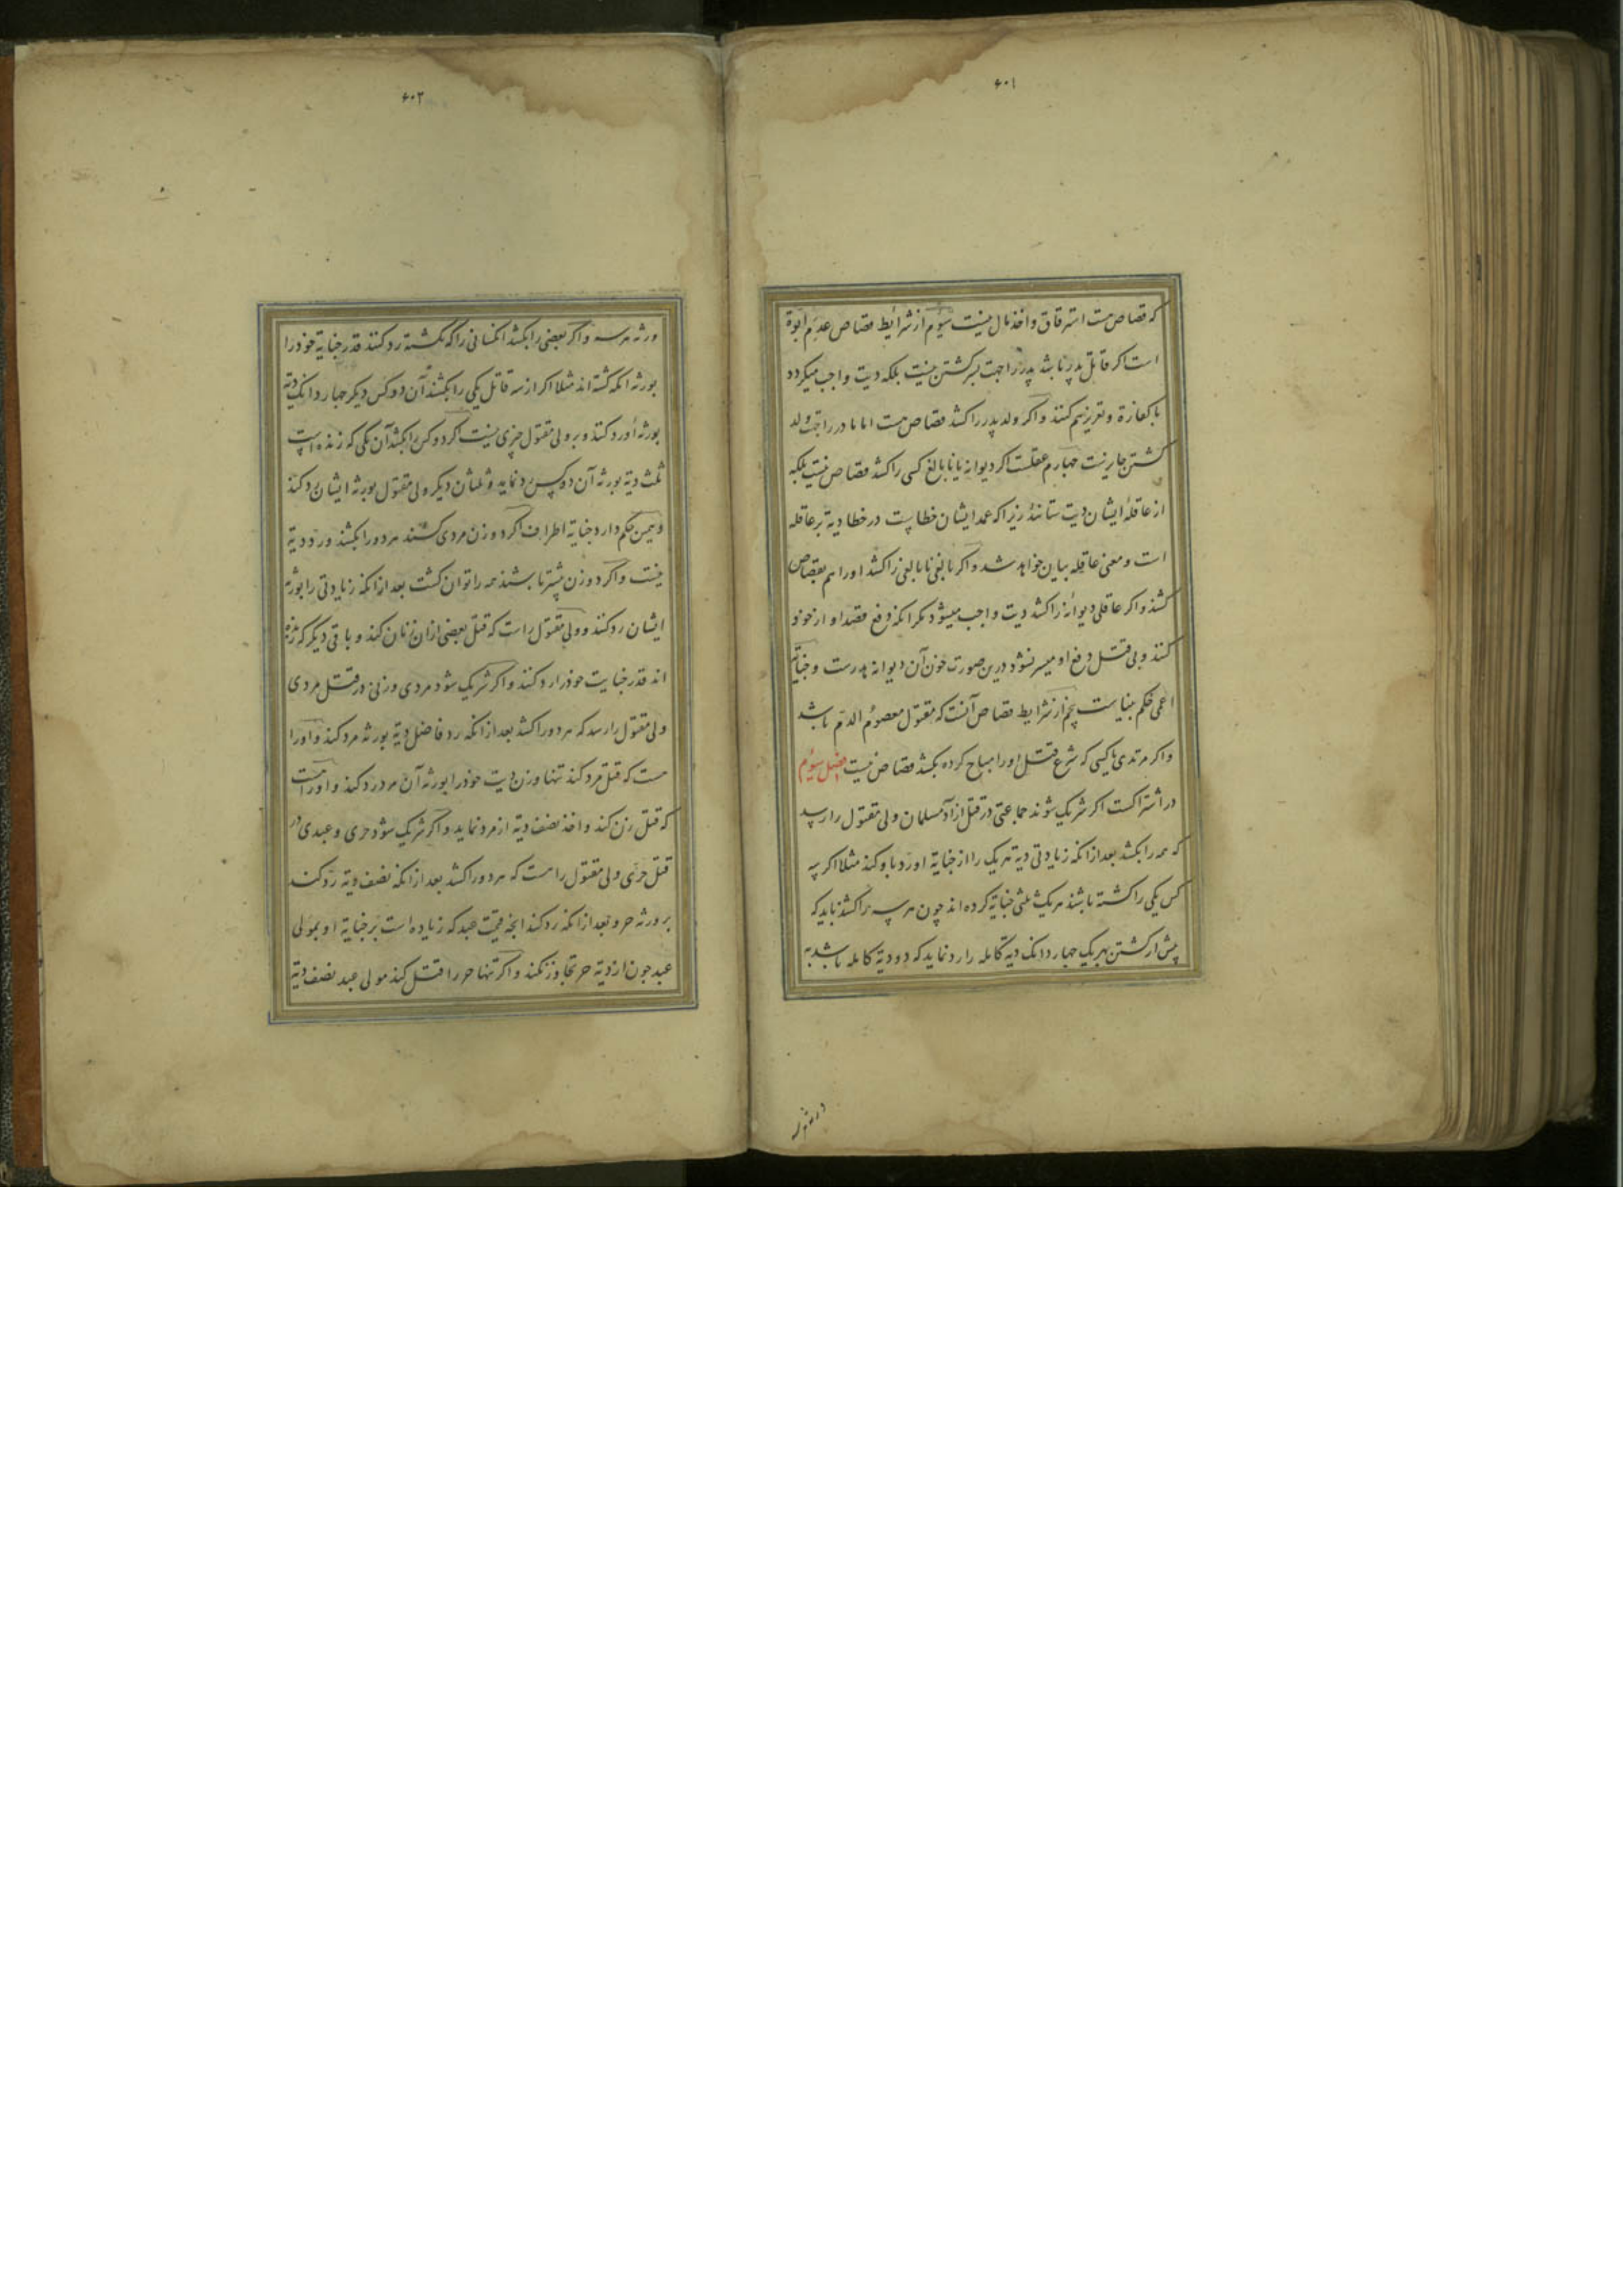 ۶۰۱
که قصاص هست استرقاق و اخذ مال نیست سیوم از شرایط قصاص عدم ابوة
است اگر قاتل پدر باشد پدر را جهت پسر کشتن نیست بلکه دیت واجب میگردد
با کفارة و تعزیر هم کنند و اگر ولد پدر را کشد قصاص هست اما مادر را جهت ولد
کشتن جایز نیست چهارم عقلست اگر دیوانه یا نابالغ کسی را کشد قصاص نیست بلکه
از عاقلهٔ ایشان دیت ستانند زیرا که عمد ایشان خطاست در خطا دیة بر عاقله
است و معنی عاقله بیان خواهد شد و اگر بالغی نابالغی را کشد او را هم بقصاص
کشند و اگر عاقلی دیوانه را کشد دیت واجب میشود مکر انکه دفع قصد او از خود
کند و بی قتل دفع او میسر نشود درین صورت خون آن دیوانه هدرست و جنایة
اعمی حکم بیناست پنجم از شرایط قصاص آنست که مقتول معصوم الدم باشد
و اگر مرتدی یا کسی که شرع قتل او را مباح کرده بکشد قصاص نیست فصل سیوم
در اشتراکست اگر شریک شوند جماعتی در قتل ازاد مسلمان ولی مقتول را رسد
که همه را بکشد بعد از انکه زیادتی دیة هر یک را از جنایة او رد باو کند مثلا اگر سه
کس یکی را کشته باشند هر یک ثلثی جنایة کرده اند چون هر سه را کشند باید که
پیش از کشتن بهر یک چهار دانک دیة کامله را رد نماید که دو دیة کامله باشد به
ورثه هر سه
۶۰۲
ورثه هر سه و اگر بعضی را بکشد انکسانی را که نکشته رد کنند قدر جنایة خود را
بورثه انکه کشته اند مثلا اگر از سه قاتل یکی را بکشند آن دو کس دیگر چهار دانک دیة
بورثه او رد کنند و بر ولی مقتول چیزی نیست اگر دو کس را بکشد آن یکی که زنده است
ثلث دیة بورثه آن دو کس رد نماید و ثلثان دیگر ولی مقتول بورثه ایشان رد کند
و همین حکم دارد جنایة اطراف اگر دو زن مردی کشند هر دو را بکشند و رد دیة
نیست و اگر دو زن بیشتر باشند همه را توان کشت بعد از انکه زیادتی را بورثه
ایشان رد کند و ولی مقتول راست که قتل بعضی ازان زنان کند و باقی دیگر که زنده
اند قدر جنایت خود را رد کنند و اگر شریک شود مردی و زنی در قتل مردی
ولی مقتول را رسد که هر دو را کشد بعد از انکه رد فاضل دیة بورثه مرد کند و او را
هست که قتل مرد کند تنها و زن دیت خود را بورثه آن مرد رد کند و او را هست
که قتل زن کند و اخذ نصف دیة از مرد نماید و اگر شریک شود حری و عبدی در
قتل حری ولی مقتول را هست که هر دو را کشد بعد از انکه نصف دیة رد کند
بر ورثه حر و بعد از انکه رد کند انچه قیمت عبد که زیاده است بر جنایة او بمولی
عبد چون از دیة حر تجاوز نکند و اگر تنها حر را قتل کند مولی عبد نصف دیة